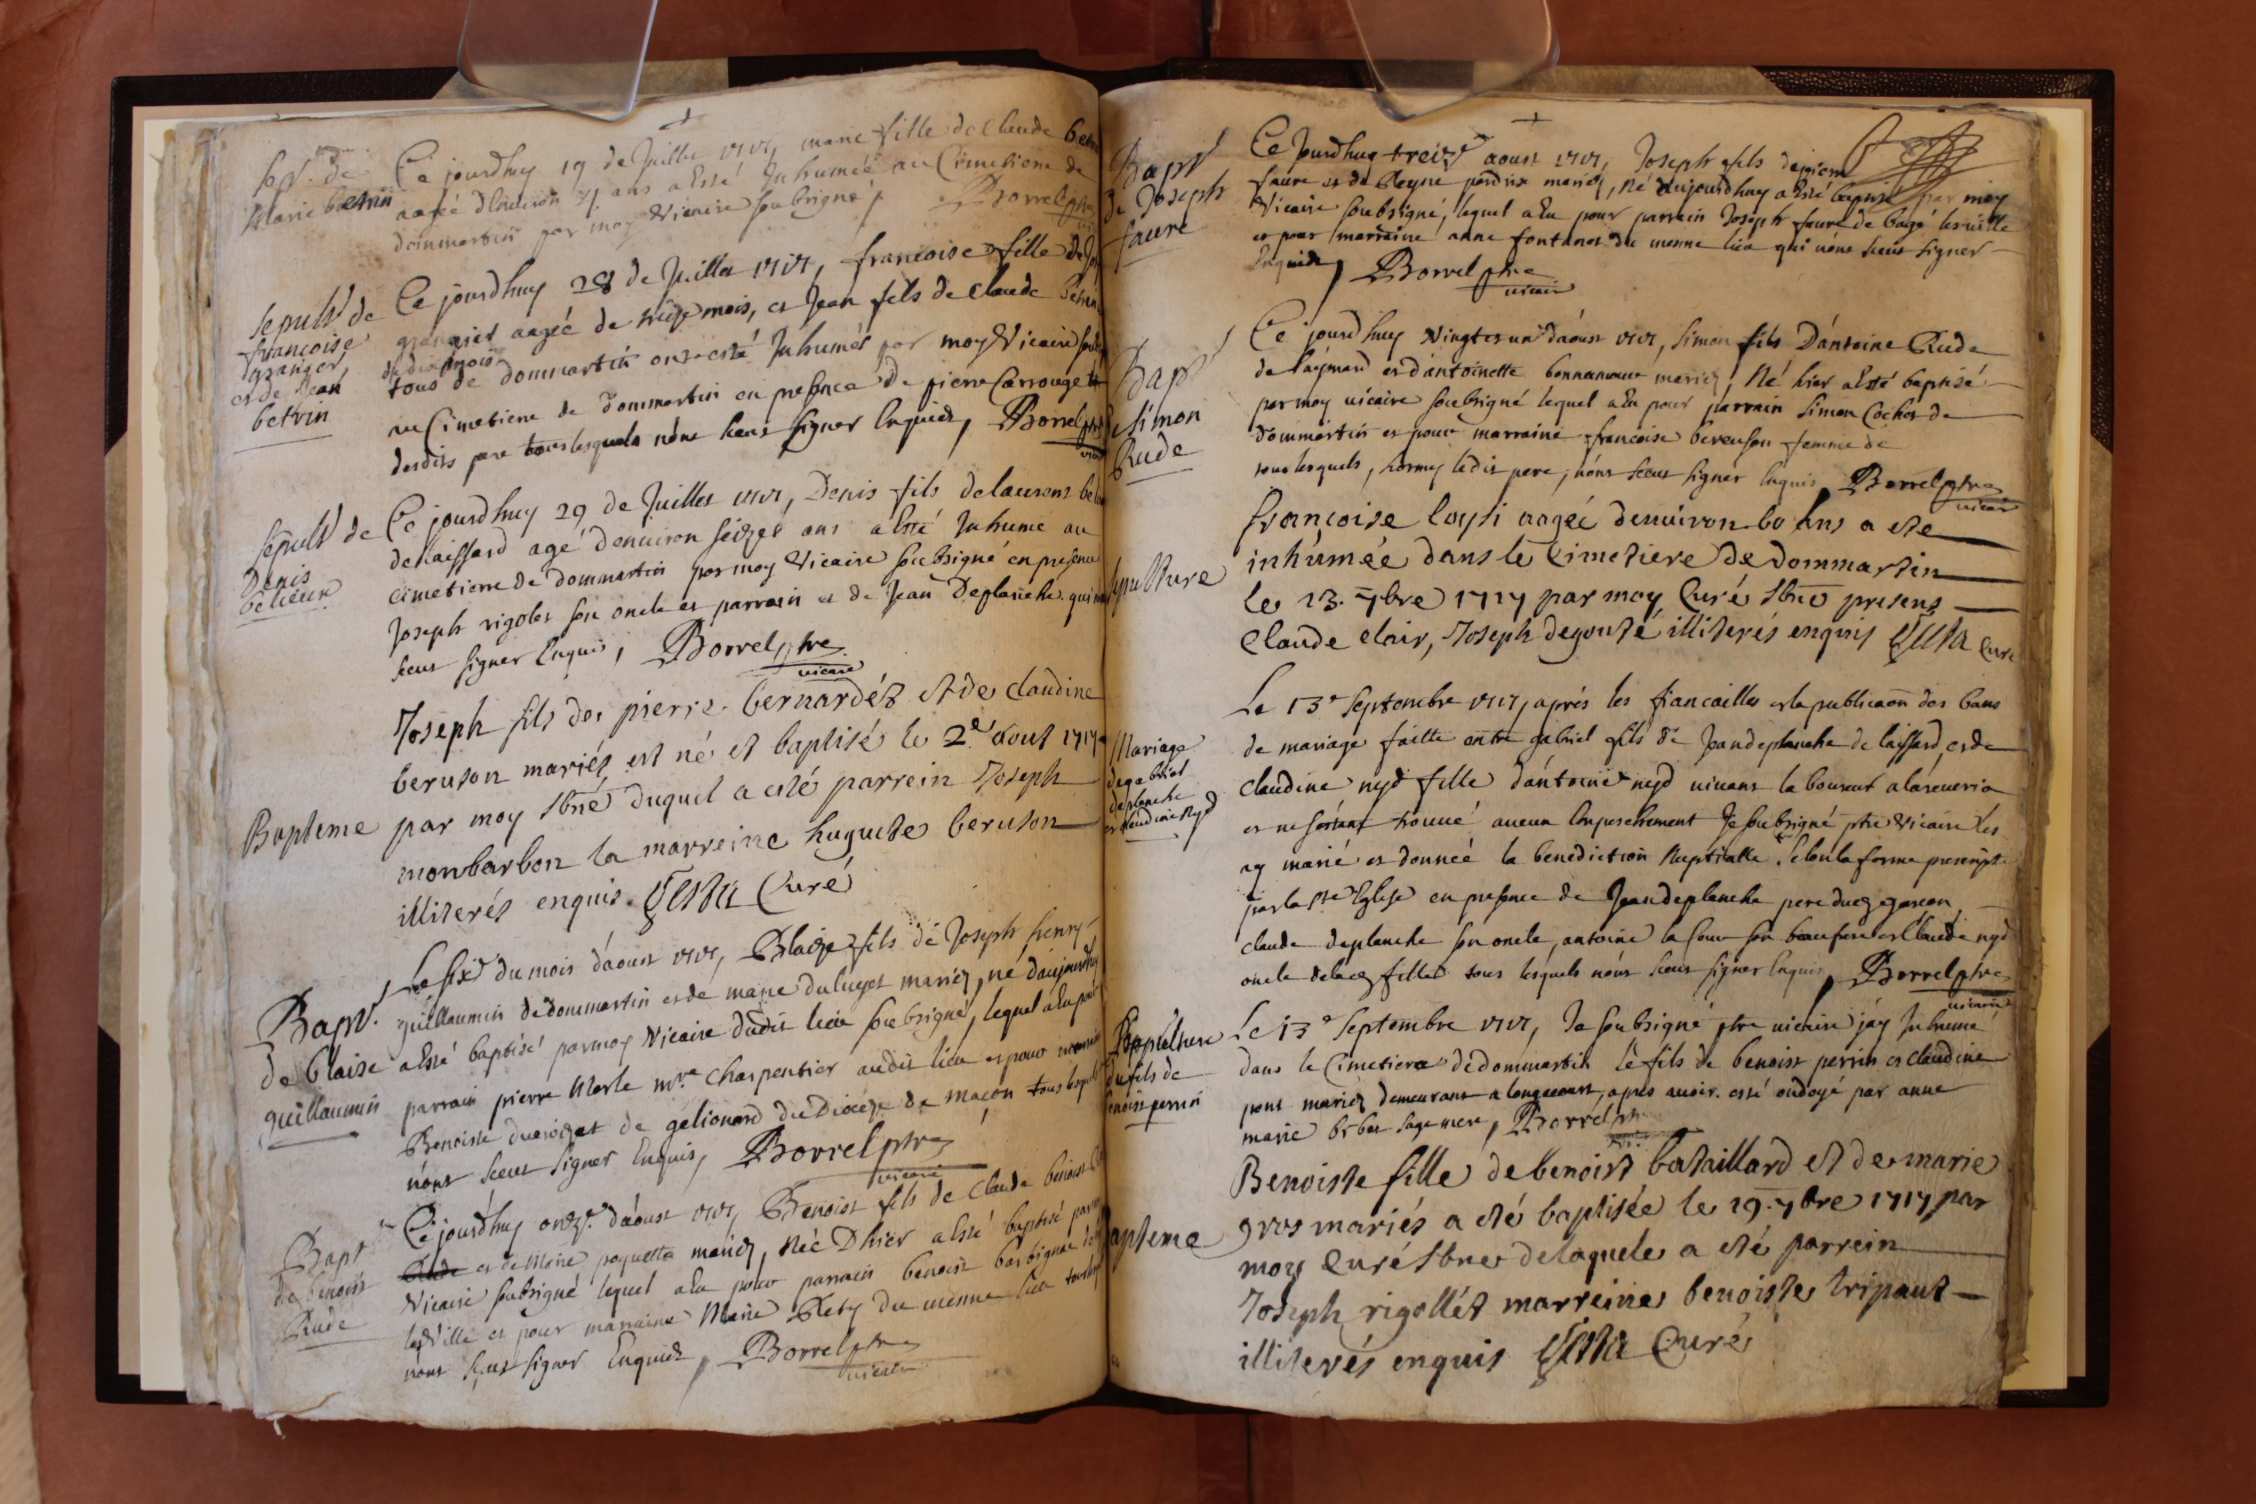 Sep.t de
Marie betrin
Ce jourdhuy 19 de Juillet 1717, marie fille de Claude
aagée denuiron ans a esté Inhumée au Cimetiere de
dommartin par moy Vicaire soubsigné Borrel ptre
Sepult de
francoise
granger,
et de Jean
betrin
Ce jourdhuy 28 de Juillet 1717, francoise fille de
granger aagée de mois, et Jean fils de Claude
de dix mois
tous de dommartin ont esté Inhumés par moy Vicaire
au Cimetiere de dommartin en presence de pierre Carrouge
desdits pere tous lesquels n'ont sceus signer Enquis, Borrel ptre
Sepult de
Denis
Ce jourdhuy 29 de Juillet 1717, Denis fils de laurens
de laissard agé denuiron seizes ans a esté Inhumé au
cimetiere de dommartin par moy Vicaire soubsigné en presence
Joseph rigolet son oncle et parrain et de Jean Deplanche qui
sceus signer Enquis, Borrel ptre
vicaire
Bapteme
Joseph fils de pierre bernardét et de claudine
beruson mariés est né et baptisé le 2e aout 1717
par moy sbné duquel a esté parrein Joseph
monbarbon la marreine huguete beruson
illiterés enquis. Curé
Bapt.
de blaise
guillaumin
Le six du mois d'aoust 1717, Blaize fils de Joseph henry
guillaumin de dommartin et de marie duluyset mariez, né daujourdhuy
a esté baptisé par moy Vicaire dudit lieu soubsigné, lequel a eu pour
parrain pierre Merle mre charpentier audit lieu et pour
Benoiste de du Diocèze de macon tous
n'ont sceus signer Enquis, Borrel ptre
vicaire
Bapt
de benoist
Rude
Ce jourdhuy onze d'aoust 1717, Benoist fils de Claude benoist
et de Marie paquette mariez, Née Dhier a esté baptisé par
Vicaire soubsigné lequel a eu pour parrain benoist
et pour marraine Marie du mesme lieu
n'ont sceus signer Enquis, Borrel ptre
vicaire
Bapt
de Joseph
faure
Ce Jourdhuy treize aoust 1717, Joseph fils de
faure et de perdrix mariez, Né daujourdhuy a esté baptisé par moy
Vicaire soubsigné, lequel a eu pour parrain Joseph faure de bagé
et pour marraine anne fontanet du mesme lieu qui n'ont sceus signer
Enquis, Borrel ptre
vicaire
Bapt
Simon
Rude
Ce jourdhuy Vingtetun d'aoust 1717, Simon fils D'antoine Rude
de et d'antoinette mariez, Né hier a esté baptisé
par moy vicaire soubsigné lequel a eu pour parrain Simon Cochet de
dommartin et pour marraine francoise beruson femme de
tous lesquels, hormy ledit pere, n'ont sceus signer Enquis Borrel ptre
vicaire
sepulture
francoise loysi aagée denuiron 60 ans a été
inhumée dans le Cimetiere de dommartin
le 13. 7bre 1717 par moy Curé sbné presens
Claude clair, Joseph degouté illiterés enquis Curé
Mariage
de gabriel
deplanche
et claudine Nyd
Le 13e Septembre 1717, aprés les fiancailles et la publicaon des bans
de mariage faitte entre gabriel fils de Jean deplanche de laissard, et de
claudine nyd fille d'antoine nyd
et ne s'estant trouué aucun Empeschement Je soubsigné ptre Vicaire les
ay marié et donneé la benediction Nuptialle Selon la forme prescripte
par la ste Eglise en presence de Jean deplanche pere dudit garcon
claude deplanche son oncle, antoine la son beaufrere et Claude nyd
oncle de la fille tous lesquels n'ont sceus signer Enquis, Borrel ptre
vicaire
Seppulture
du fils de
benoist perrin
Le 13e Septembre 1717, Je soubsigné ptre vicaire j'ay Inhumé
dans le Cimetiere de dommartin le fils de benoist perrin et claudine
pont mariez demeurant a longecourt, apres auoir esté ondoyé par anne
marie sage mere, Borrel ptre
bapteme
Benoiste fille de benoist bataillard et de marie
gros mariés a eté baptisée le 19. 7bre 1717 par
moy Curé sbné delaquele a eté parrein
Joseph rigollét marreine benoiste tripaut
illiterés enquis Curé